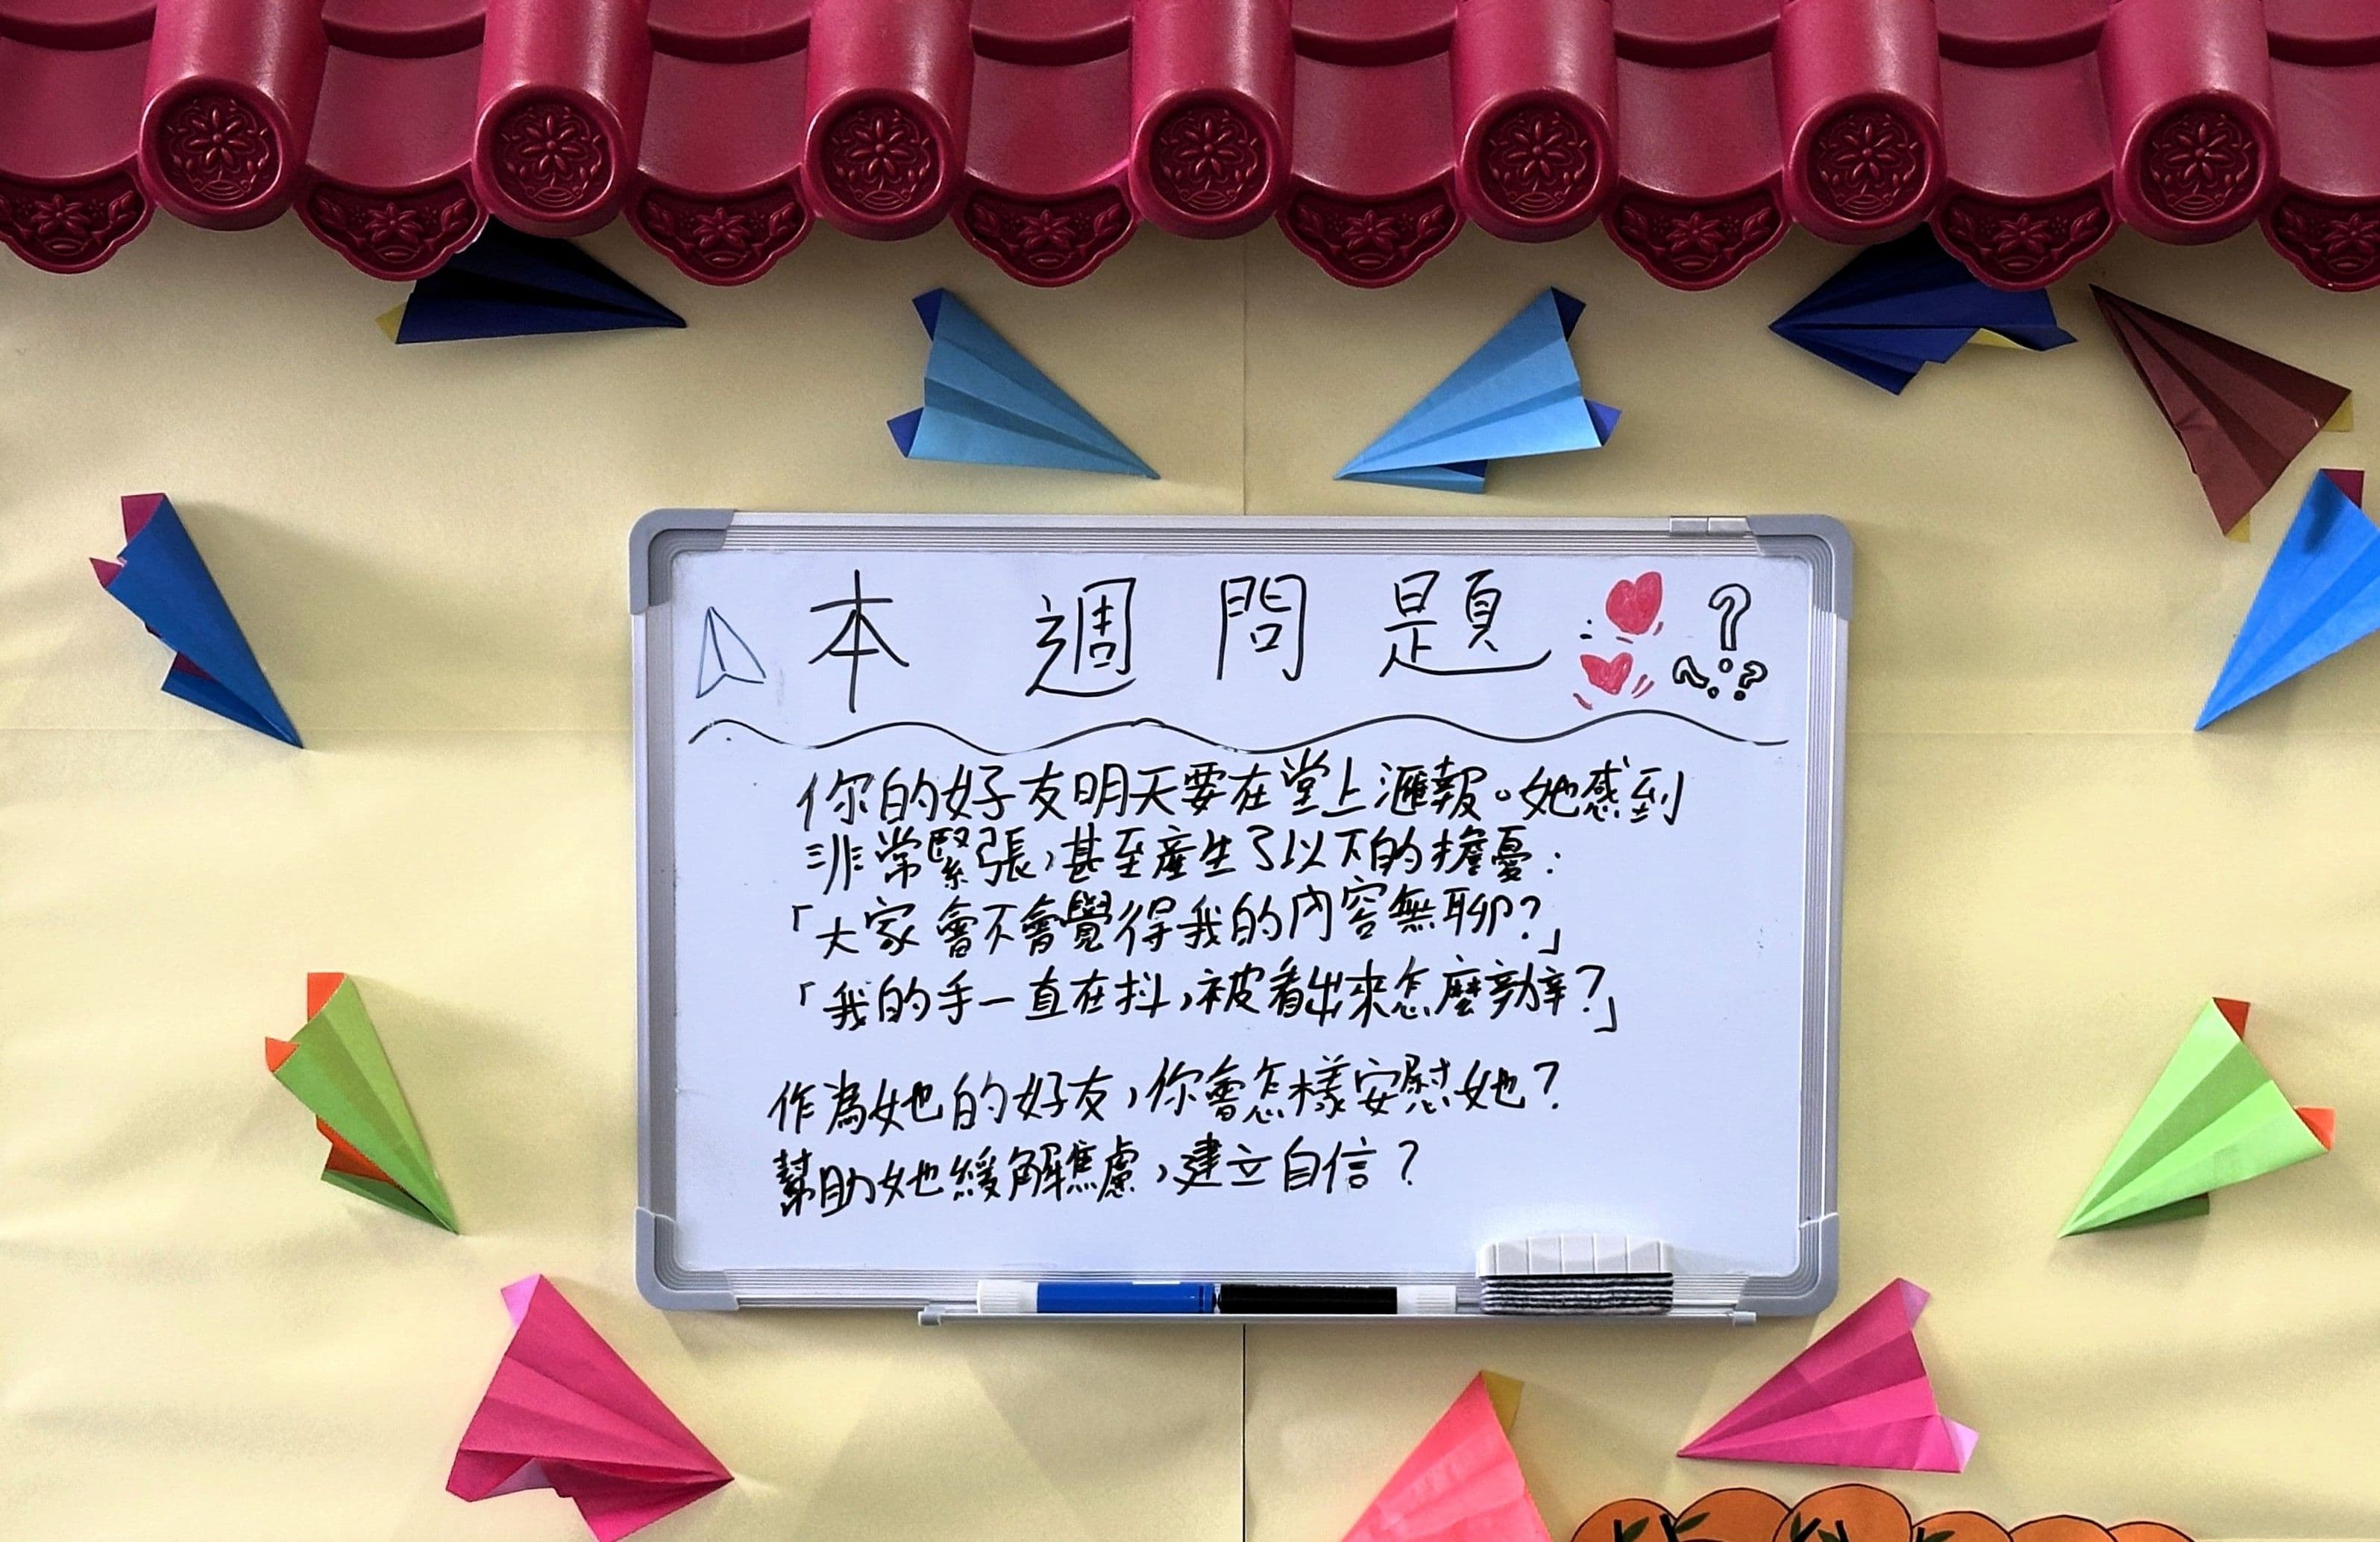 本週問題 ?
? ?
你的好友明天要在堂上滙報。她感到
非常緊張,甚至產生了以下的擔憂:
「大家會不會覺得我的內容無聊?」
「我的手一直在抖,被看出來怎麼辦?」
作為她的好友,你會怎樣安慰她?
幫助她緩解焦慮,建立自信?